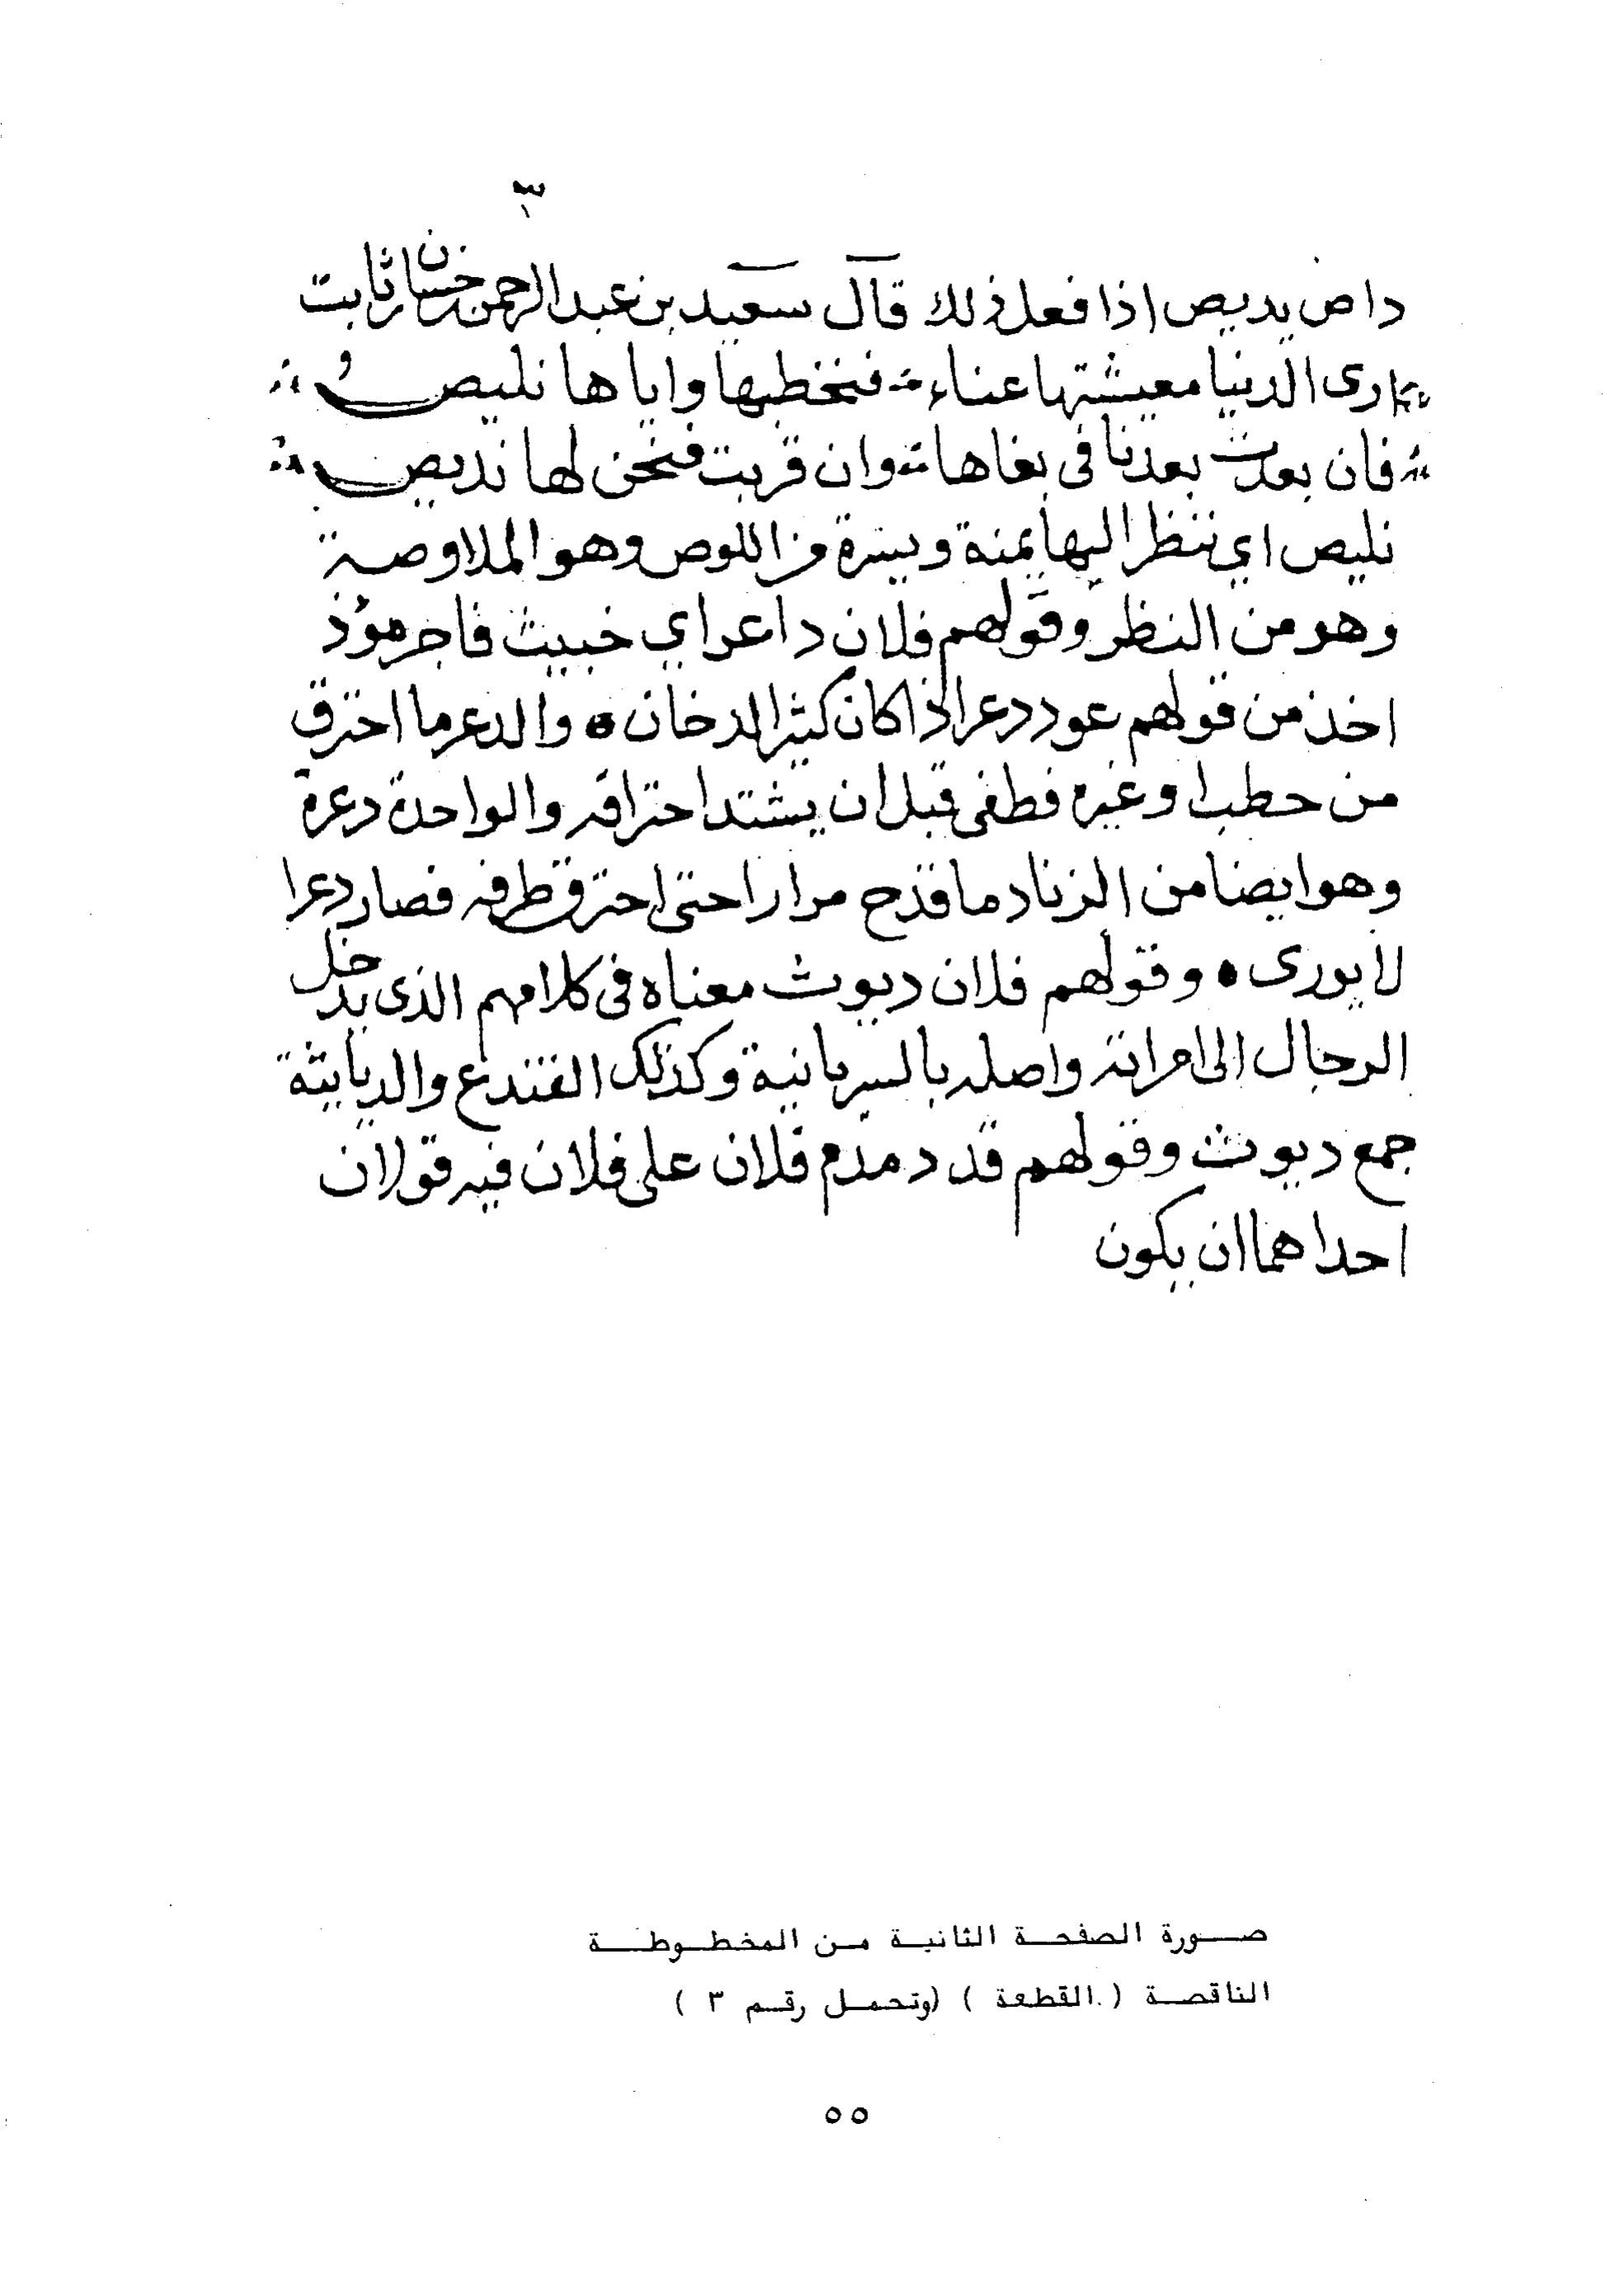 ٣
داص يديص اذا فعل ذلك قال سعيد بن عبد الرحمن بن حسان بن ثابت
ارى الدنيا معيشتها عناء فنخطبها واياها نليص
فان بعدت بعدنا في بغاها وان قربت فنحن لها نديص
نليص اي ننظر اليها يمنة ويسرة من اللوص وهو الملاوصة
وهو من النظر وقولهم فلان داعر اي خبيث فاجر موذ
اخذ من قولهم عود دعر اذا كان كثير الدخان ه والدعر ما احترق
من حطب او غيره فطفى قبل ان يشتد احتراقه والواحدة دعرة
وهو ايضا من الزناد ما قدح مرارا حتى احترق طرفه فصار دعرا
لا يورى ه وقولهم فلان ديوث معناه في كلامهم الذى يدخل
الرجال الى امراته واصله بالسريانية وكذلك القنذع والديايثة
جمع ديوث وقولهم قد دمدم فلان على فلان فيه قولان
احداهما ان يكون
صورة الصفحة الثانية من المخطوطة
الناقصة ( القطعة ) (وتحمل رقم ٣ )
٥٥